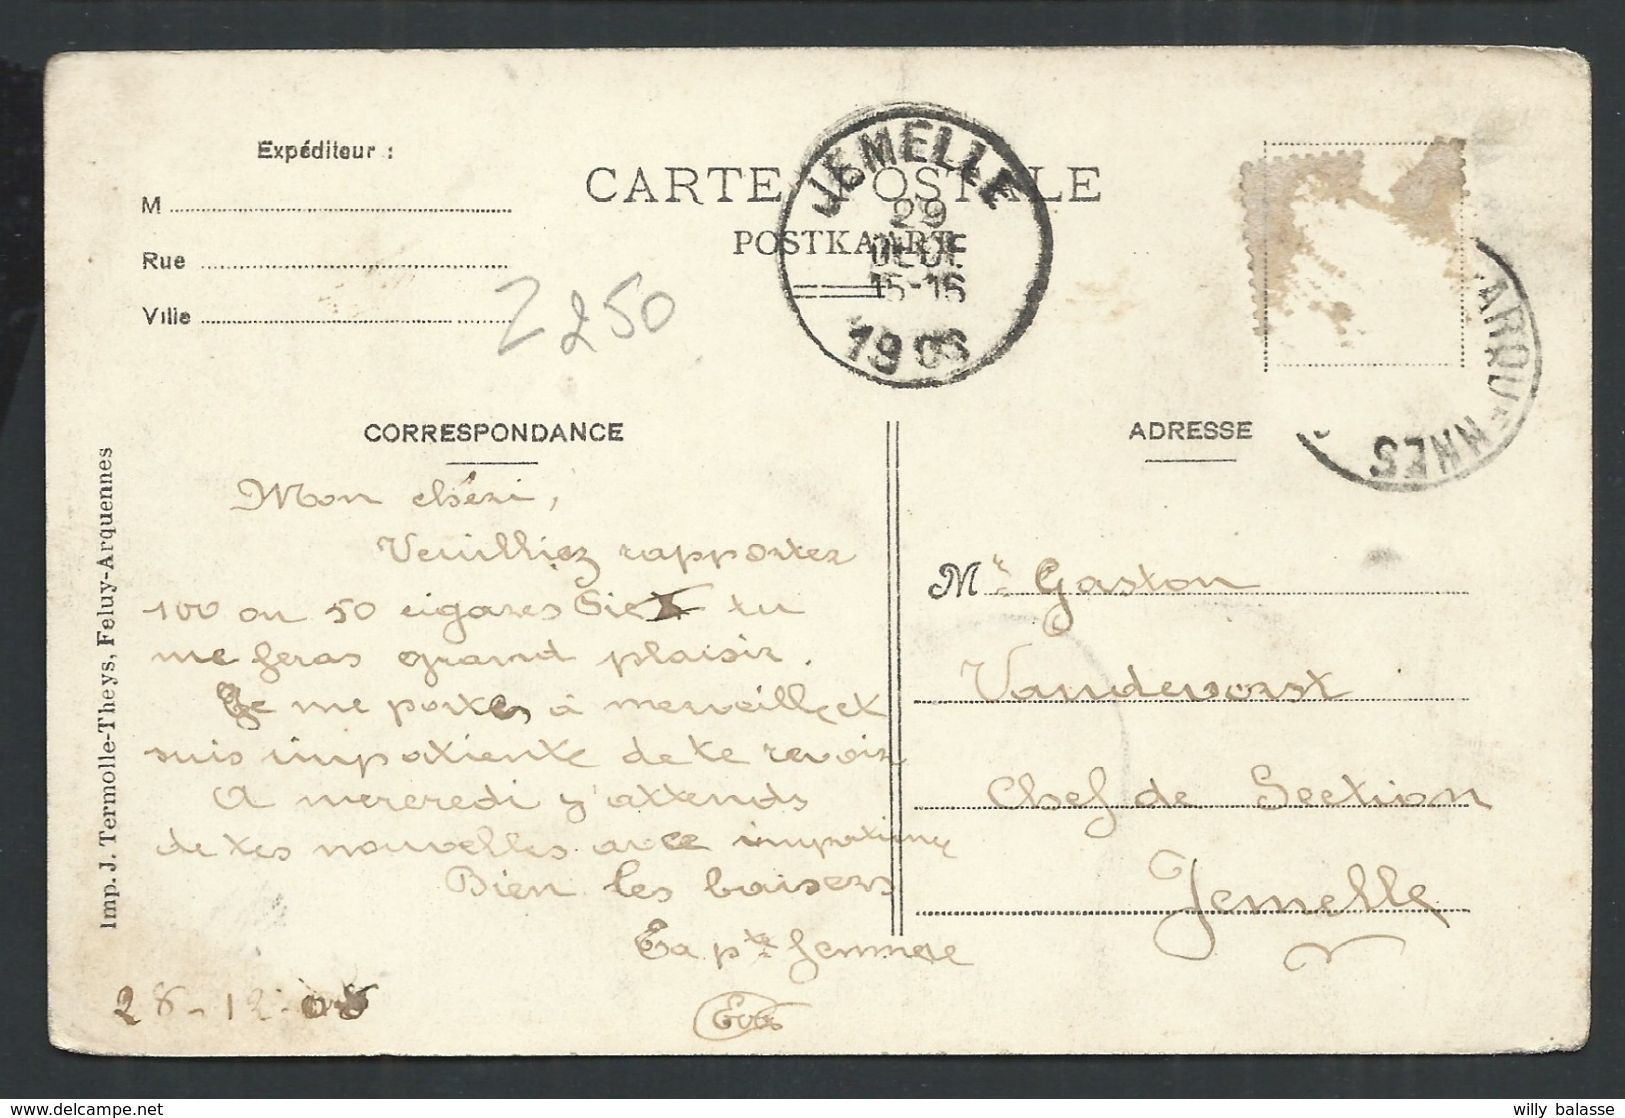 Expéditeur :
M
Rue
Ville
CARTE POSTALE
POSTKAART
JEMELLE
29
DECE
15-16
1908
ARQUENNES
2250
CORRESPONDANCE
ADRESSE
Mon chéri,
Veuilliez rapporter
100 ou 50 cigares tu
me feras grand plaisir.
Je me portes à merveille et
suis impatiente de te revoir
A mercredi j'attends
de tes nouvelles avec impatience
Bien les baisers
Ta pte femme
28-12-08
Mr Gaston
Vandevorst
Chef de Section
Jemelle
Imp. J. Termolle-Theys, Feluy-Arquennes
willy balasse